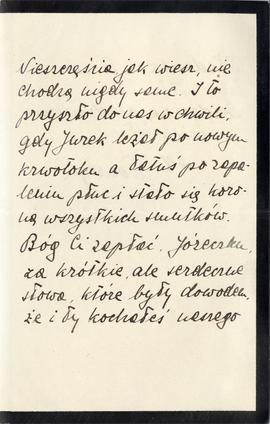 Nieszczęścia jak wiesz, nie
chodzą nigdy same. I to
przyszło do nas w chwili,
gdy Jurek leżał po nowym
krwotoku a Tatuś po zapa-
leniu płuc i stało się koro-
ną wszystkich smutków.
Bóg Ci zapłać, Józeczku,
za krótkie, ale serdeczne
słowa, które były dowodem,
że i ty kochałeś naszego